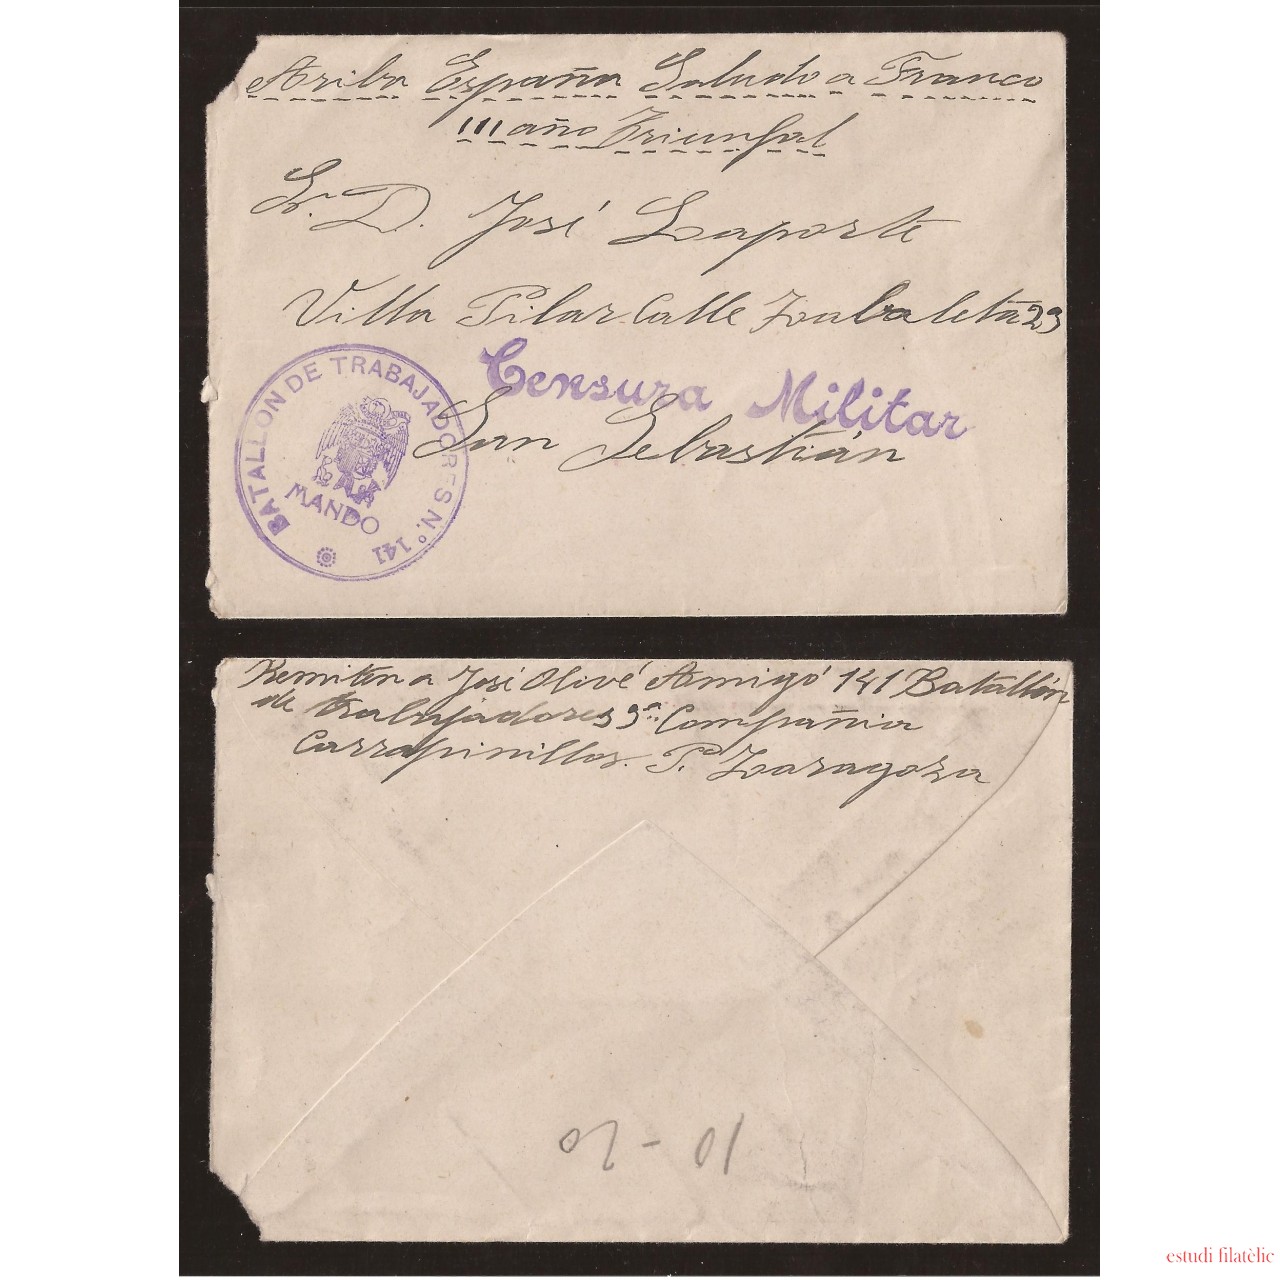 Arriba España Saludo a Franco
III año Triunfal
Sr. D. José Laporte
Villa Pilar Calle Zabaleta 23
Censura Militar
San Sebastián
BATALLON DE TRABAJADORES N.º 141
MANDO
Remiten a José Olivé Amigó 141 Batallón
de trabajadores 3ª Compañia
Carrapinillos. P. Zaragoza
10-20
estudi filatèlic